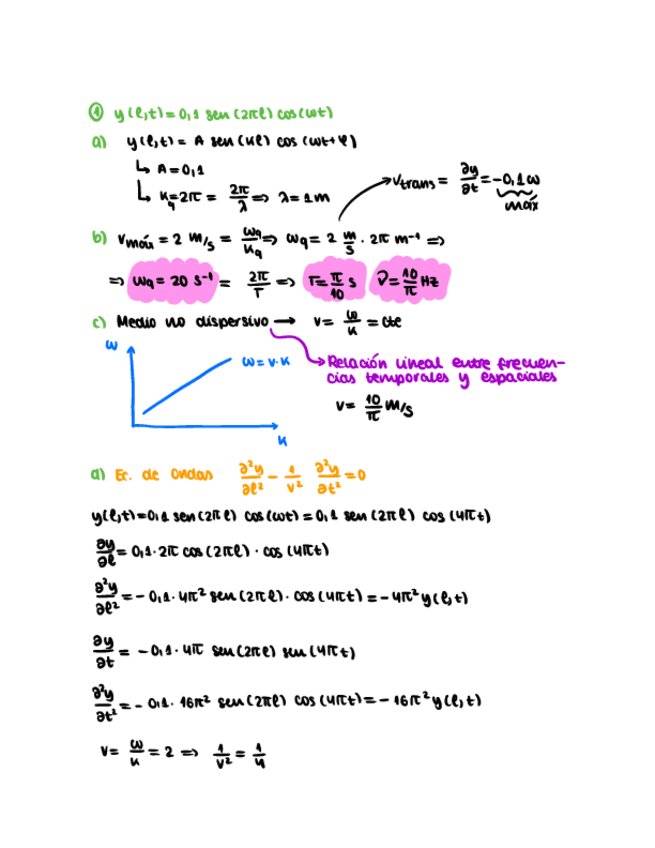 ① y(l,t)=0,1 sen(2πl) cos(ωt)
a) y(l,t)= A sen(Kl) cos(ωt+φ)
↳ A=0,1
↳ Kq=2π = 2π/λ ⇒ λ=1m
Vtrans = ∂y/∂t = -0,1ω
máx
b) Vmáx = 2 m/s = ωq/Kq ⇒ ωq = 2 m/s · 2π m⁻¹ ⇒
⇒ ωq = 20 s⁻¹ = 2π/T ⇒ T=π/10 s ν=10/π Hz
c) Medio no dispersivo → v= ω/K = cte
ω
ω=v·K
K
Relación lineal entre frecuen-
cias temporales y espaciales
v= 10/π m/s
d) Ec. de ondas ∂²y/∂l² - 1/v² ∂²y/∂t² =0
y(l,t)=0,1 sen(2πl) cos(ωt) = 0,1 sen(2πl) cos(4πt)
∂y/∂l = 0,1·2π cos(2πl) · cos(4πt)
∂²y/∂l² = - 0,1·4π² sen(2πl)· cos(4πt) = -4π² y(l,t)
∂y/∂t = -0,1·4π sen(2πl) sen(4πt)
∂²y/∂t² = - 0,1· 16π² sen(2πl) cos(4πt) = -16π² y(l,t)
v= ω/K = 2 ⇒ 1/v² = 1/4